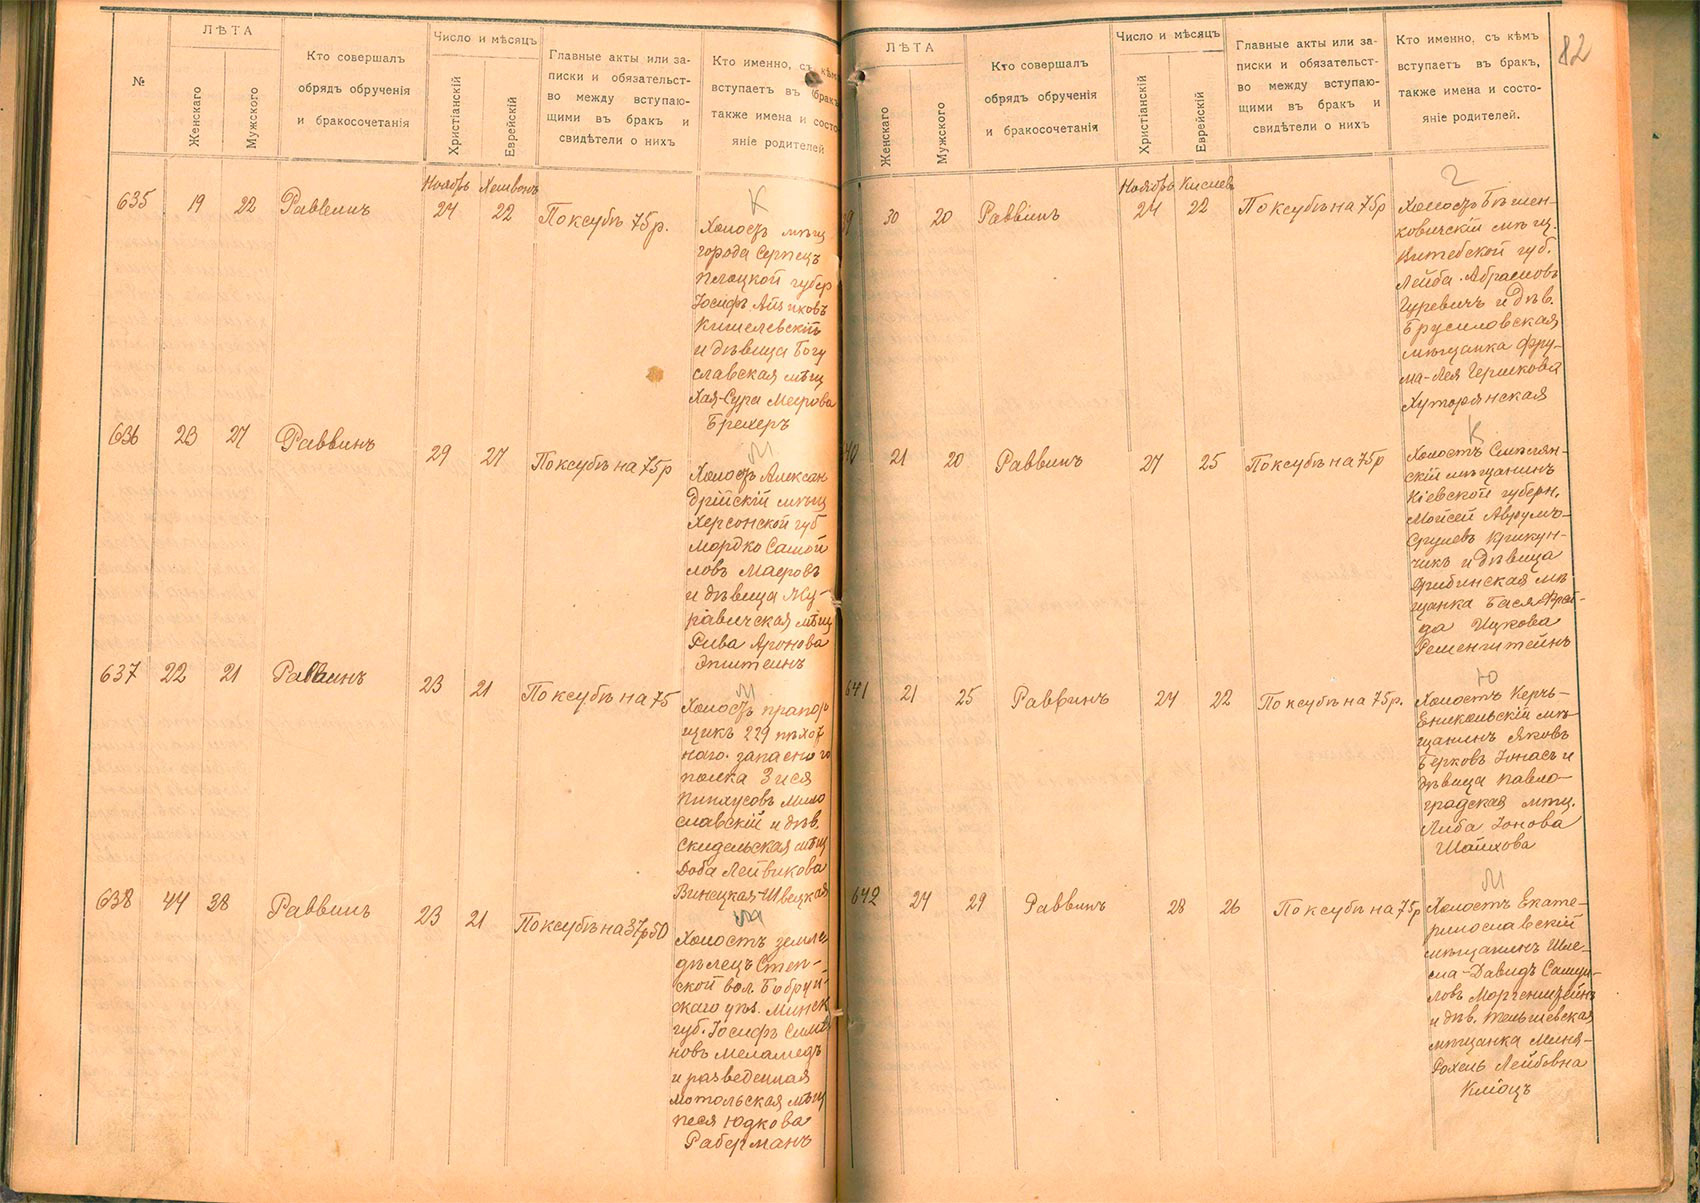 №
ЛѢТА
Женскаго
Мужского
Кто совершалъ
обрядъ обрученія
и бракосочетанія
Число и мѣсяцъ
Христіанскій
Еврейскій
Главные акты или за-
писки и обязательст-
во между вступаю-
щими въ бракъ и
свидѣтели о нихъ
Кто именно, съ кѣмъ
вступаетъ въ бракъ
также имена и состо
яніе родителей
635 19 22 Раввинъ
Ноябрь Хешвонъ
24 22
По ксубѣ 75 р.
К
Холостъ мѣщ
города Серпецъ
Плоцкой губер
Іосифъ Айзиковъ
Кишелевскій
и дѣвица Богу
славская мѣщ
Хая-Сура Меерова
Брехеръ
636 23 27 Раввинъ 29 27 По ксубѣ на 75 р
М
Холостъ Алексан
дрійскій мѣщ
Херсонской губ
Мордко Самой
ловъ Маеровъ
и дѣвица Жу-
равичская мѣщ
Рива Аронова
Эпштеинъ
637 22 21 Раввинъ 23 21 По ксубѣ на 75
М
Холостъ прапор
щикъ 229 пѣхот
наго. запасного
полка Зися
Пинхусовъ Мило
славскій и дѣв.
Скидельская мѣщ
Доба Лейвикова
Винецкая-Швецкая
638 44 38 Раввинъ 23 21 По ксубѣ на 37 р 50
М
Холостъ земле
дѣлецъ Степ-
ской вол. Бобруй-
скаго уѣз. Минск
губ. Іосифъ Симо
новъ Меламедъ
и разведенная
Мотольская мѣщ
Песя Юдкова
Раберманъ
82
ЛѢТА
Женскаго
Мужского
Кто совершалъ
обрядъ обрученія
и бракосочетанія
Число и мѣсяцъ
Христіанскій
Еврейскій
Главные акты или за-
писки и обязательст-
во между вступаю-
щими въ бракъ и
свидѣтели о нихъ
Кто именно, съ кѣмъ
вступаетъ въ бракъ,
также имена и состо-
яніе родителей.
39 30 20 Раввинъ
Ноябрь Кислевъ
24 22
По ксубѣ на 75 р
Г
Холостъ Бѣшен-
ковичскій мѣщ.
Витебской губ.
Лейба Абрамовъ
Гуревичъ и дѣв.
Брусиловская
мѣщанка Фру-
ма-Лея Гершкова
Хуторянская
40 21 20 Раввинъ 27 25 По ксубѣ на 75 р
К
Холостъ Смѣлян-
скій мѣщанинъ
Кіевской губерн.
Мойсей Аврумъ-
Сруловъ Крикун-
чикъ и дѣвица
мѣ
щанка Бася-Фрей-
да Ицкова
641 21 25 Раввинъ 24 22 По ксубѣ на 75 р.
Ю
Холостъ Керчь-
Еникольскій мѣ-
щанинъ Яковъ
Берковъ Юнасъ и
дѣвица Павло-
градская мѣщ.
Либа Іонова
Шайхова
642 24 29 Раввинъ 28 26 По ксубѣ на 75 р
М
Холостъ Екате-
ринославскій
мѣщанинъ Шле-
ма-Давидъ Самуй-
ловъ Моргенштейнъ
и дѣв. Тельшевская
мѣщанка Миня-
Рохель Лейбовна
Кліоцъ